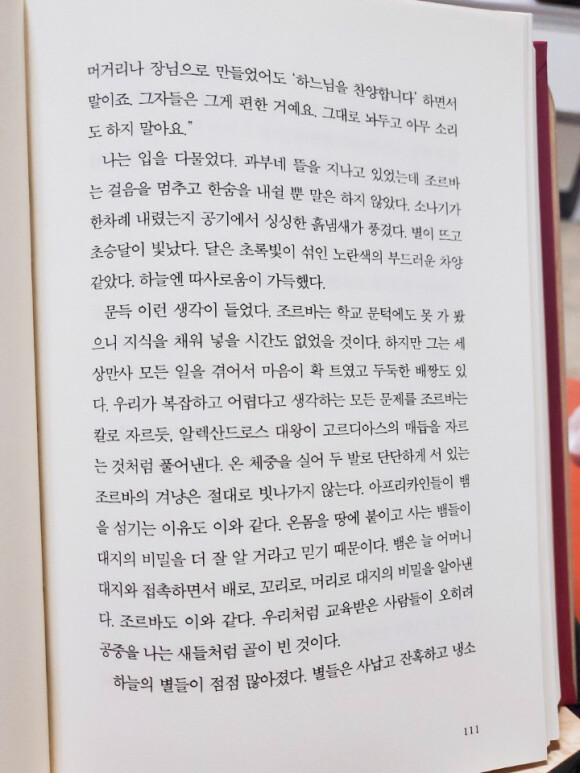 머거리나 장님으로 만들었어도 ‘하느님을 찬양합니다’ 하면서
말이죠. 그자들은 그게 편한 거예요. 그대로 놔두고 아무 소리
도 하지 말아요.”
나는 입을 다물었다. 과부네 뜰을 지나고 있었는데 조르바
는 걸음을 멈추고 한숨을 내쉴 뿐 말은 하지 않았다. 소나기가
한차례 내렸는지 공기에서 싱싱한 흙냄새가 풍겼다. 별이 뜨고
초승달이 빛났다. 달은 초록빛이 섞인 노란색의 부드러운 차양
같았다. 하늘엔 따사로움이 가득했다.
문득 이런 생각이 들었다. 조르바는 학교 문턱에도 못 가 봤
으니 지식을 채워 넣을 시간도 없었을 것이다. 하지만 그는 세
상만사 모든 일을 겪어서 마음이 확 트였고 두둑한 배짱도 있
다. 우리가 복잡하고 어렵다고 생각하는 모든 문제를 조르바는
칼로 자르듯, 알렉산드로스 대왕이 고르디아스의 매듭을 자르
는 것처럼 풀어낸다. 온 체중을 실어 두 발로 단단하게 서 있는
조르바의 겨냥은 절대로 빗나가지 않는다. 아프리카인들이 뱀
을 섬기는 이유도 이와 같다. 온몸을 땅에 붙이고 사는 뱀들이
대지의 비밀을 더 잘 알 거라고 믿기 때문이다. 뱀은 늘 어머니
대지와 접촉하면서 배로, 꼬리로, 머리로 대지의 비밀을 알아낸
다. 조르바도 이와 같다. 우리처럼 교육받은 사람들이 오히려
공중을 나는 새들처럼 골이 빈 것이다.
하늘의 별들이 점점 많아졌다. 별들은 사납고 잔혹하고 냉소
111